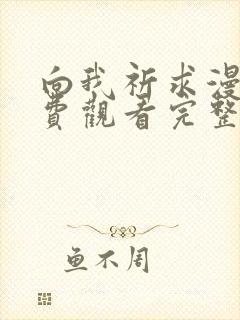 向我祈求漫
費觀看完整
鱼不周